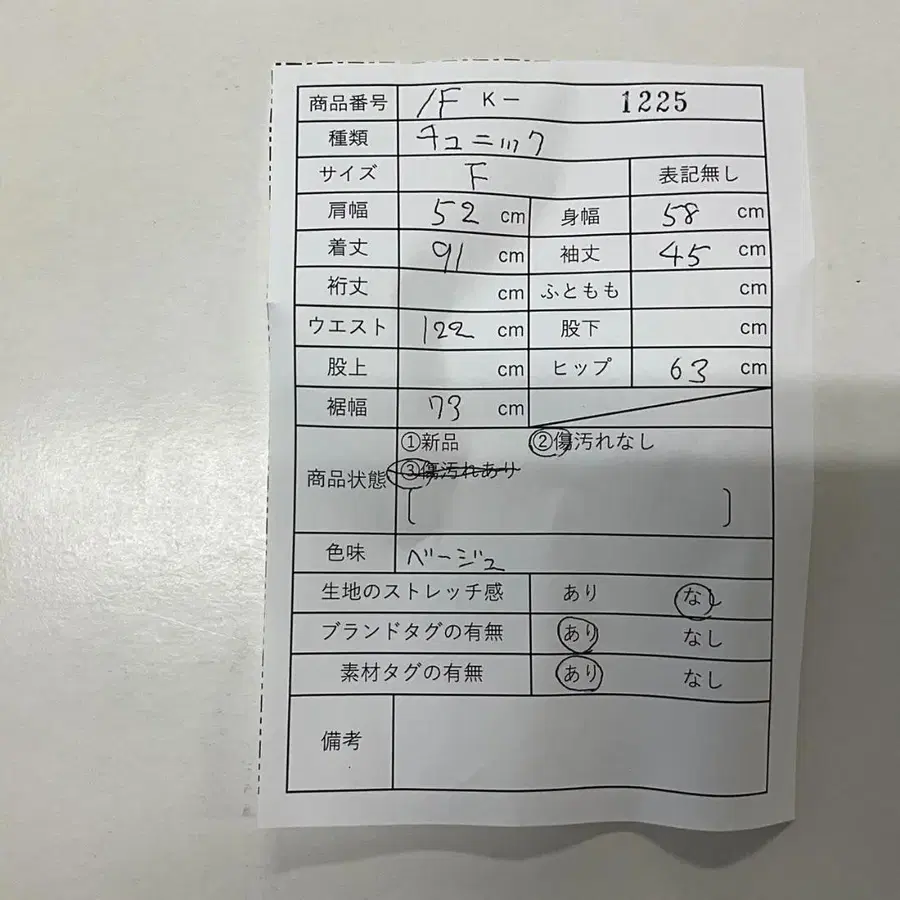 商品番号 1F K- 1225
種類 チュニック
サイズ F 表記無し
肩幅 52 cm 身幅 58 cm
着丈 91 cm 袖丈 45 cm
裄丈 cm ふともも cm
ウエスト 122 cm 股下 cm
股上 cm ヒップ 63 cm
裾幅 73 cm
①新品 ②傷汚れなし
③傷汚れあり
商品状態
色味 ベージュ
生地のストレッチ感 あり なし
ブランドタグの有無 あり なし
素材タグの有無 あり なし
備考